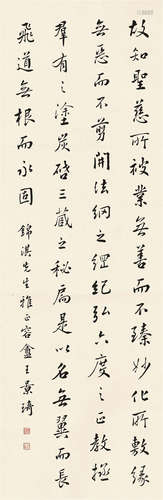 故知聖慈所被業無善而不臻妙化所敷緣
無惡而不翦開法網之綱紀弘六度之正教拯
群有之塗炭啓三藏之秘扃是以名無翼而長
飛道無根而永固
錦洪先生雅正容盦王景琦